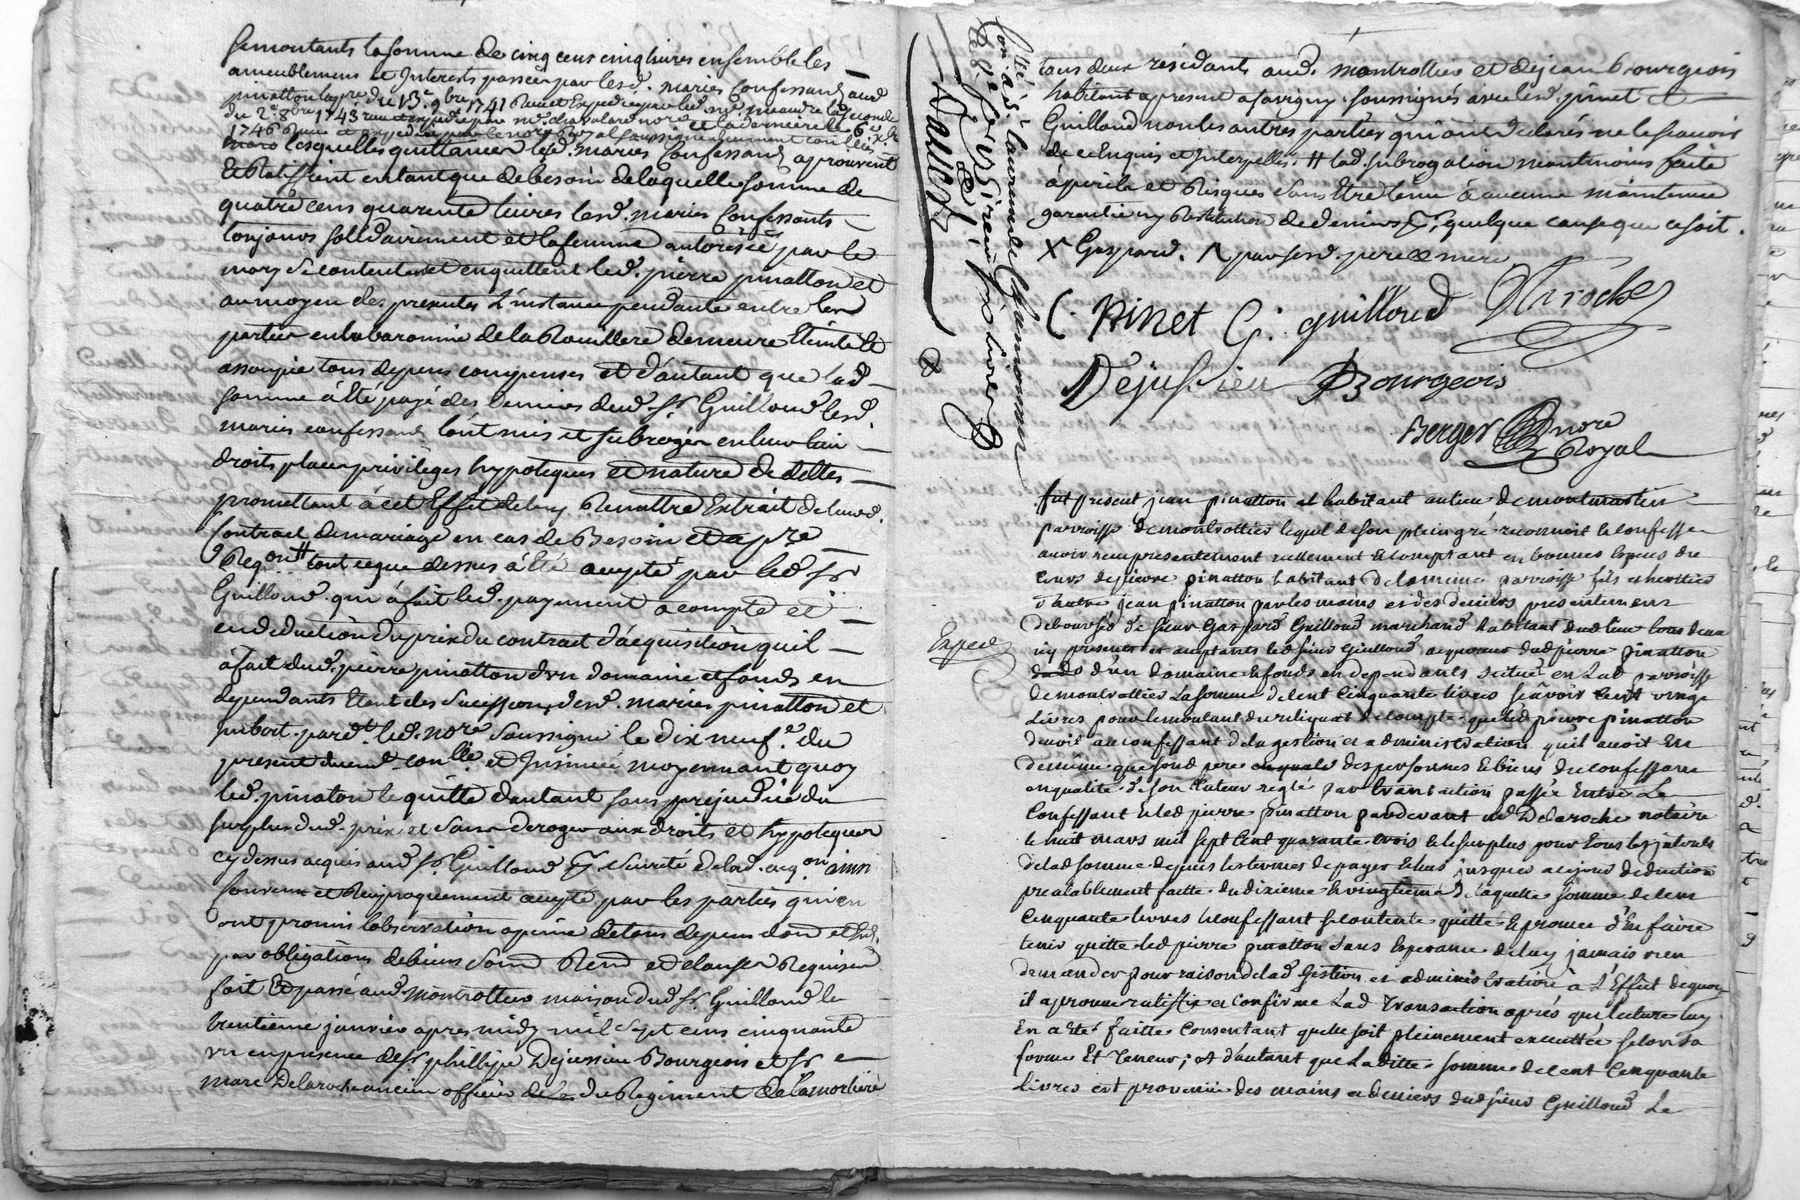 se montants la somme de cinq cens cinq livres ensemble les
ameublemens et Interests passées par lesd. mariés Confessans aud
pinatton le pre. du 13e. 9bre 1741
du 2e. 8bre 1743 la seconde
1746 et la derniere le 6e. xbre
lesquelles quittances lesd. mariés Confessans approuvent
Et Ratiffient entant que de besoin de laquelle somme de
quatre cens quarente livres lesd. mariés Confessants
toujours sollidairement et la femme autorisée par le
mary se contentent et en quittent led. pierre pinatton et
au moyen des presentes L'instance pendante entre les
parties en la baronnie de la Rouillere demeure Eteinte et
assoupie tous depens compensés et d'autant que lad.
somme a été payé des deniers dud. sr. Guilloud lesd.
mariés confessans l'ont mis et subrogés en leur lieu
droits place privileges hypoteques et nature de dettes
promettant a cet Effet de luy Remettre Extrait de leurd.
Contract de mariage en cas de Besoin et a pre.
Reqon # tout ce que dessus a été accepté par led. sr
Guilloud qui a fait led. payement a compte et
en deduction du prix du contract d'acquisition qu'il
a fait dud. pierre pinatton d'un domaine et fonds en
dependants Etant des successions desd. mariés pinatton et
par dt. led. nore soussigné le dix neufe. du
present duement conllé et Insinué moyennant quoy
led. pinaton le quitte d'autant sans prejudice du
surplus dud. prix et sans deroger aux droits et hypoteques
cy dessus acquis aud. sr. Guilloud pr. seureté de lad. acqon. ainsi
convenu et Reciproquement accepté par les parties qui en
ont promis l'observation a peine de tous depens dom. et int.
par obligations de biens soum. Renon. et clauses Requises
fait Et passé aud. montrottier maison dud. sr. Guilloud le
trentieme janvier apres midy mil sept cens cinquante
un en presence de sr. phillipe Dejussieu Bourgeois et sr
marc Delaroche ancien officier de du Regiment de la morliere
Conllé à
le 8e. fevrier
Dauest
tous deux residants aud. montrottier et dejean bourgeois
habitant a present a savigny soussignés avec lesd. pinet et
Guilloud non les autres parties qui ont declarés ne le scavoir
de ce Enquis et Interpellés. # lad. subrogation neantmoins faite
a perils et Risques sans Etre tenu a aucune maintenue
garantie ny Restitution de deniers pr. quelque cause que ce soit.
X Gaspard. par sesd. pere et mere
C. Pinet G. guilloud Dlaroche
Dejussieu Bourgeois
Berger nore
Royal
fut present jean pinatton et habitant au lieu de
parroisse de montrottier lequel de son plein gré reconnoit et confesse
avoir reçu presentement reellement et comptant en bonnes Especes de
cours de pierre pinatton habitant de la meme parroisse fils et heritier
d'autre jean pinatton par les mains et des deniers presentement
deboursés de sieur Gaspard Guilloud marchand habitant dud lieu tous deux
icy presents et acceptants led sieur Guilloud acquereur dud pierre pinatton
d'un domaine et fonds en dependants scitué en lad parroisse
de montrottier La somme de cent Cinquante livres scavoir cent vingt
Livres pour le montant du reliquat de compte que led pierre pinatton
devoit au confessant de la gestion et administration qu'il avoit Eu
de meme que sond pere des personnes et biens du confessant
en qualité de son tuteur reglé par transaction passée Entre Le
Confessant et led pierre pinatton pardevant me Delaroche notaire
le huit mars mil sept cent quarante trois et le surplus pour tous les interets
de lad somme depuis les termes de payer echus jusques a ce jour deduction
prealablement faitte du dixieme et vingtieme de laquelle somme de cent
Cinquante livres le confessant se contente quitte et promet d'En faire
tenir quitte led pierre pinatton sans Esperance de luy jamais rien
demander pour raison de lad gestion et administration a L'Effet de quoy
il aprouve ratiffie et Confirme Lad Transaction aprés que lecture luy
En a Eté faitte Consentant quelle soit pleinement executtée selon sa
forme Et Teneur; et d'autant que Laditte somme de cent Cinquante
livres est provenüe des mains et deniers dud sieur Guilloud Le
Exped